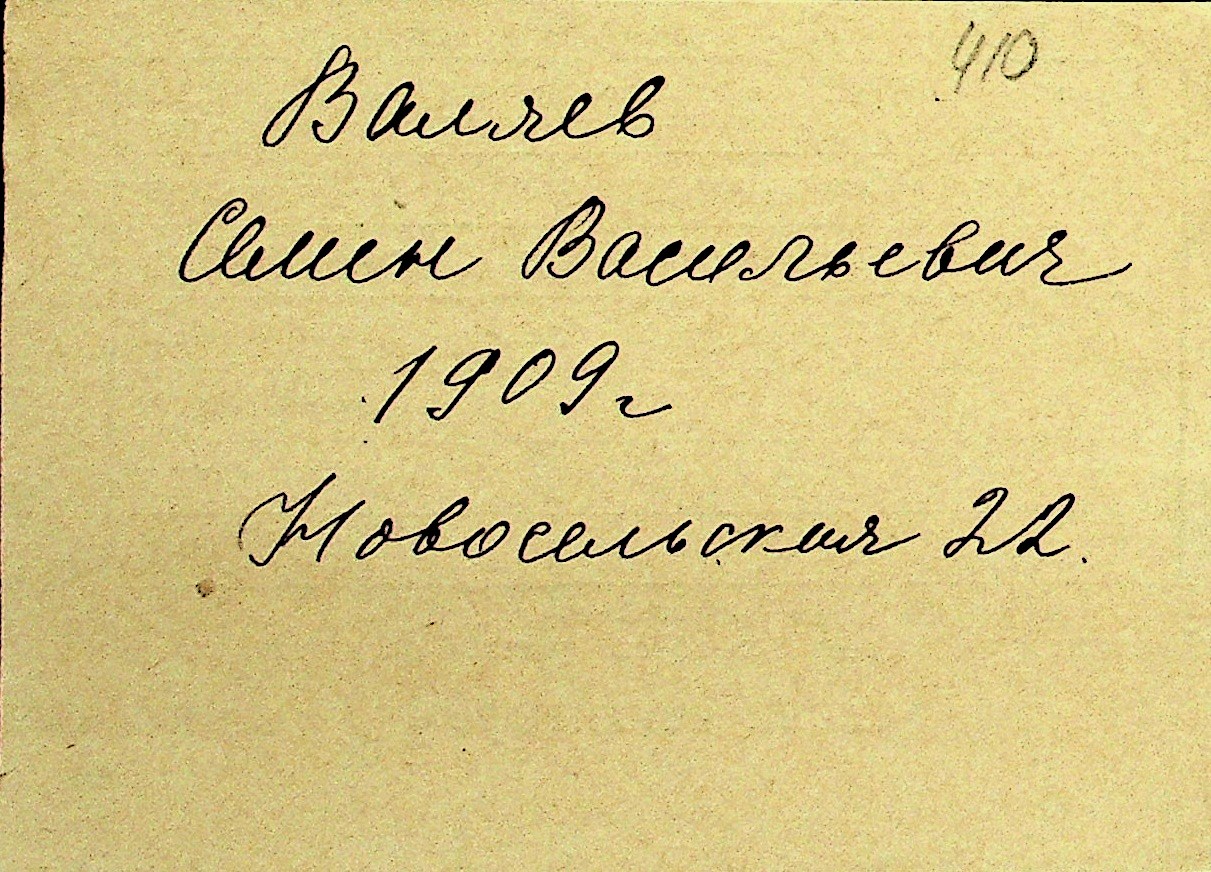 410
Валяев
Семен Васильевич
1909г
Новосельская 22.